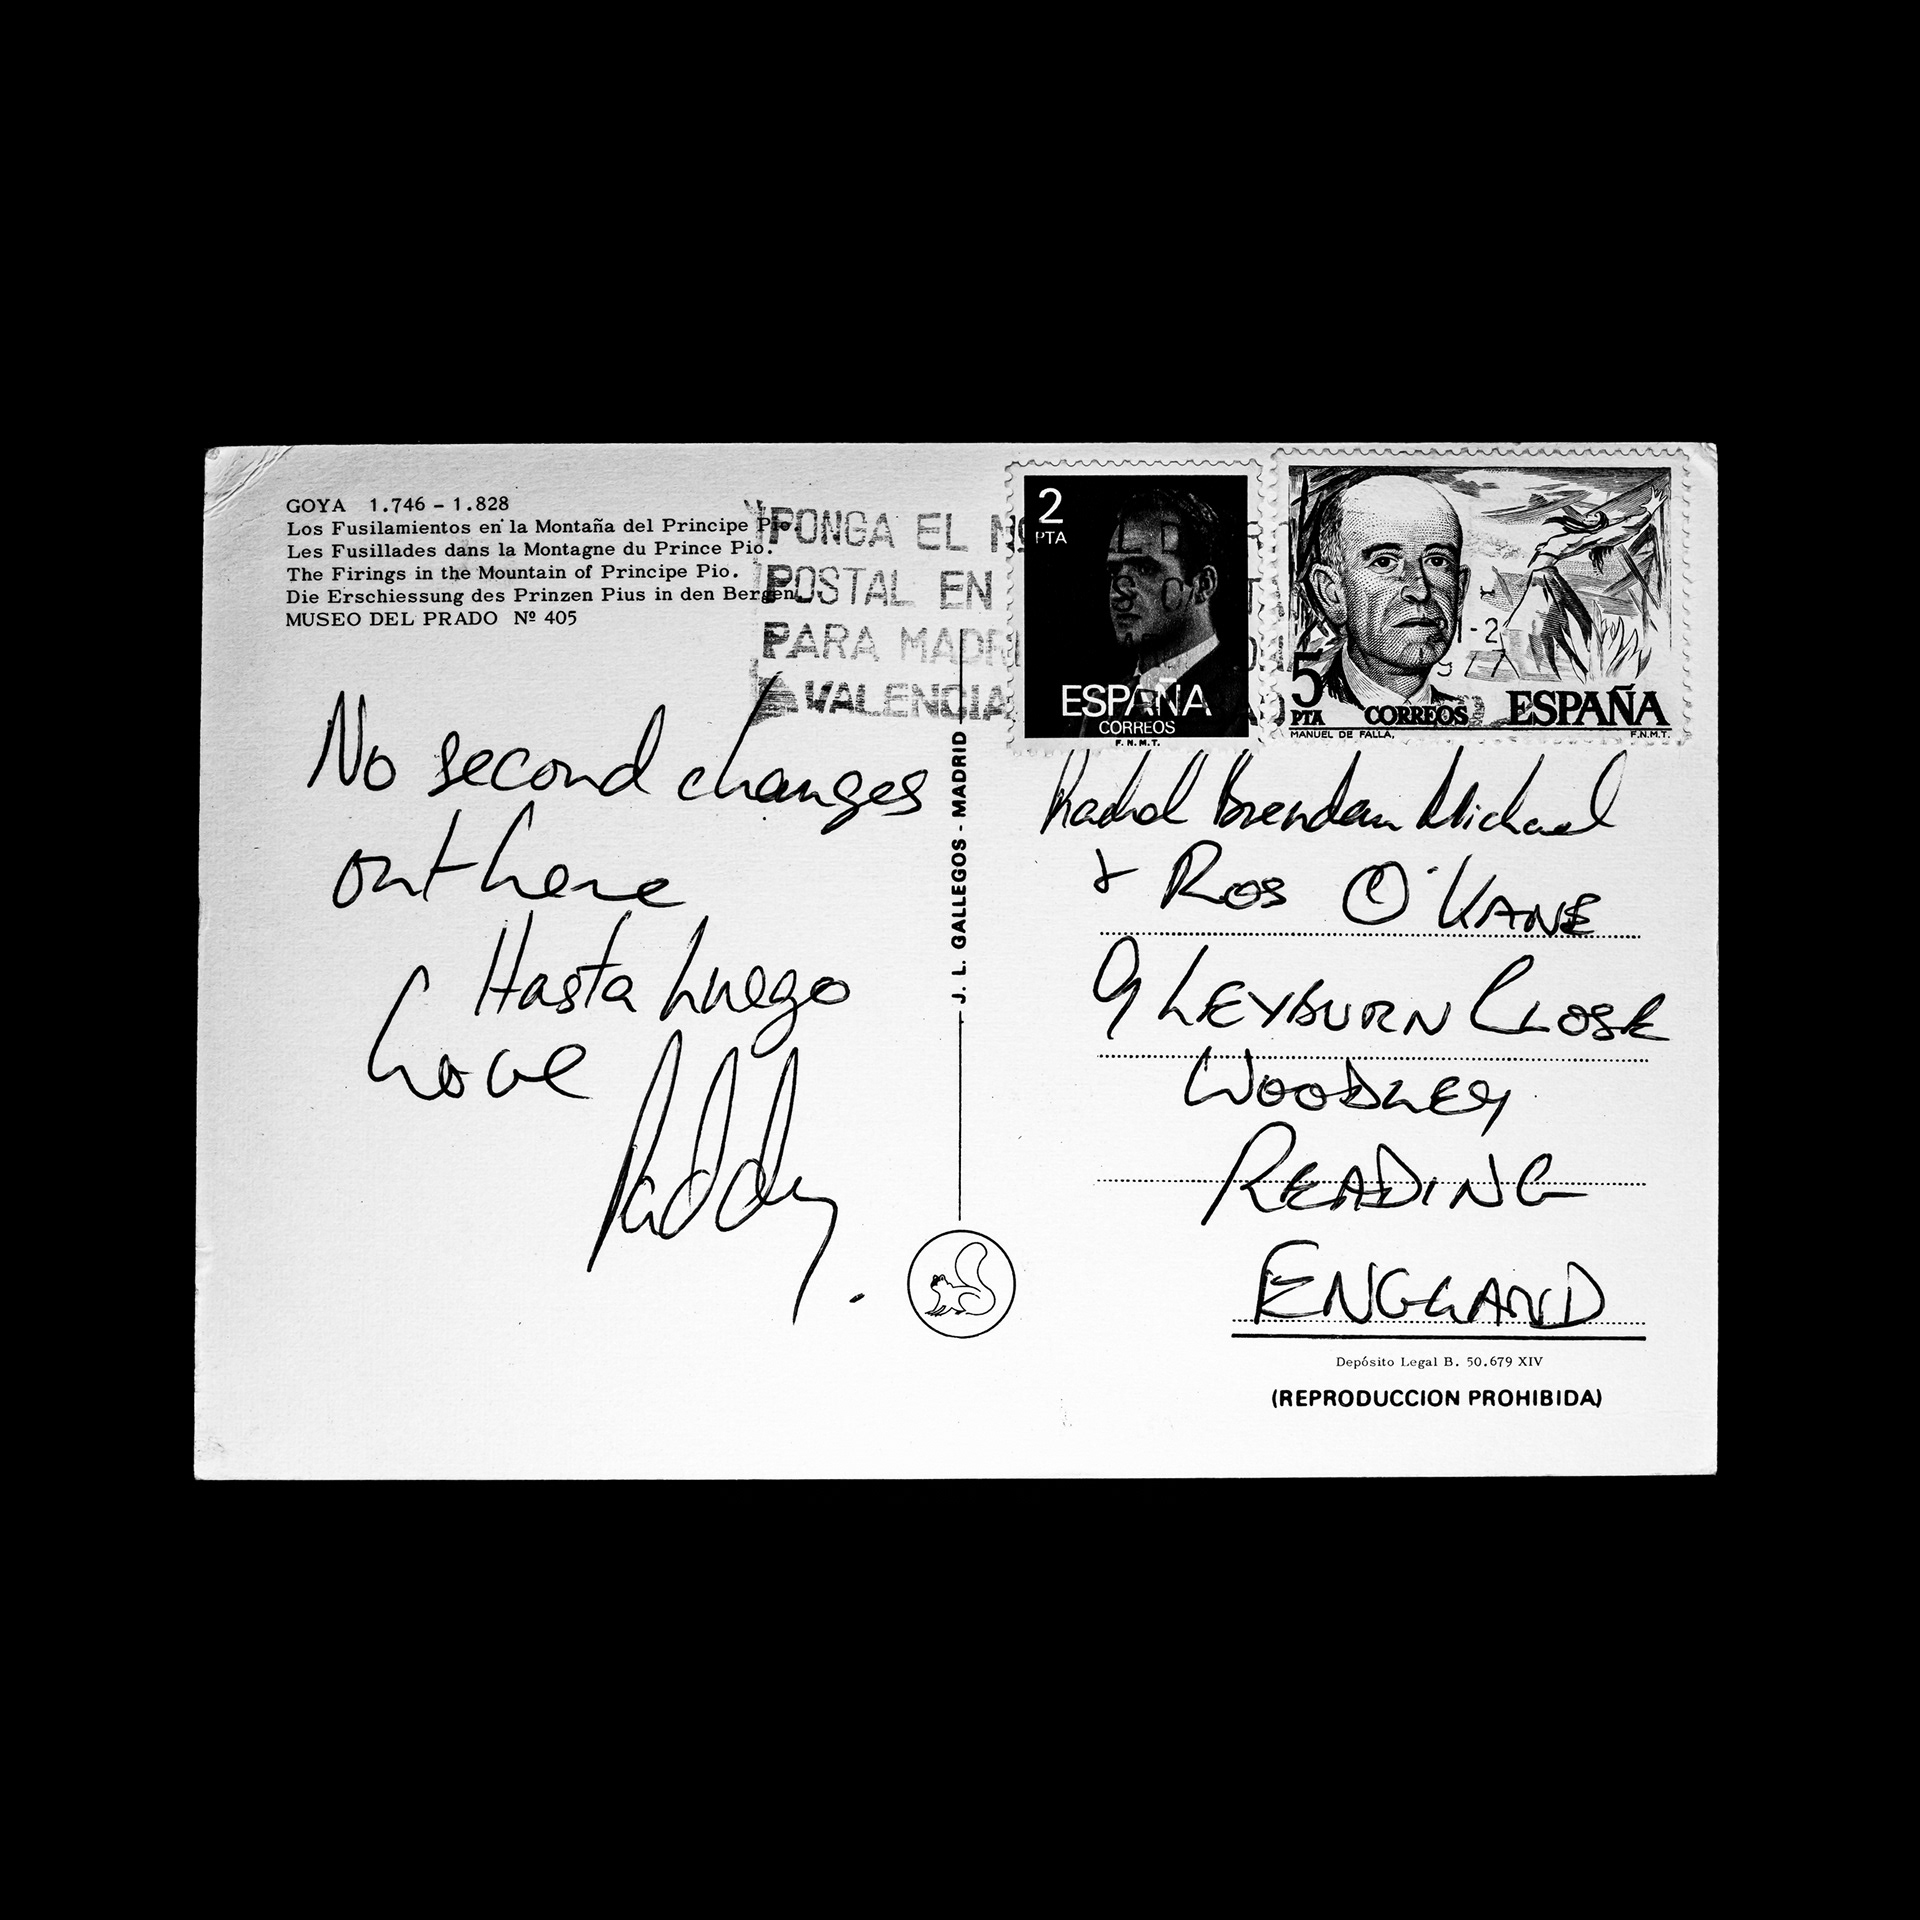 GOYA 1.746 - 1.828
Los Fusilamientos en la Montaña del Principe Pio.
Les Fusillades dans la Montagne du Prince Pio.
The Firings in the Mountain of Principe Pio.
Die Erschiessung des Prinzen Pius in den Bergen
MUSEO DEL PRADO Nº 405
PONGA EL
POSTAL EN
PARA
VALENCIA
No second changes
out here
Hasta Luego
Love
Paddy.
J. L. GALLEGOS - MADRID
2
PTA
ESPAÑA
CORREOS
F.N.M.T.
5
PTA CORREOS ESPAÑA
MANUEL DE FALLA, F.N.M.T.
Rachel Brendan Michael
+ ROS O'KANE
9 LEYBURN CLOSE
WOODLEY
READING
ENGLAND
Depósito Legal B. 50.679 XIV
(REPRODUCCION PROHIBIDA)